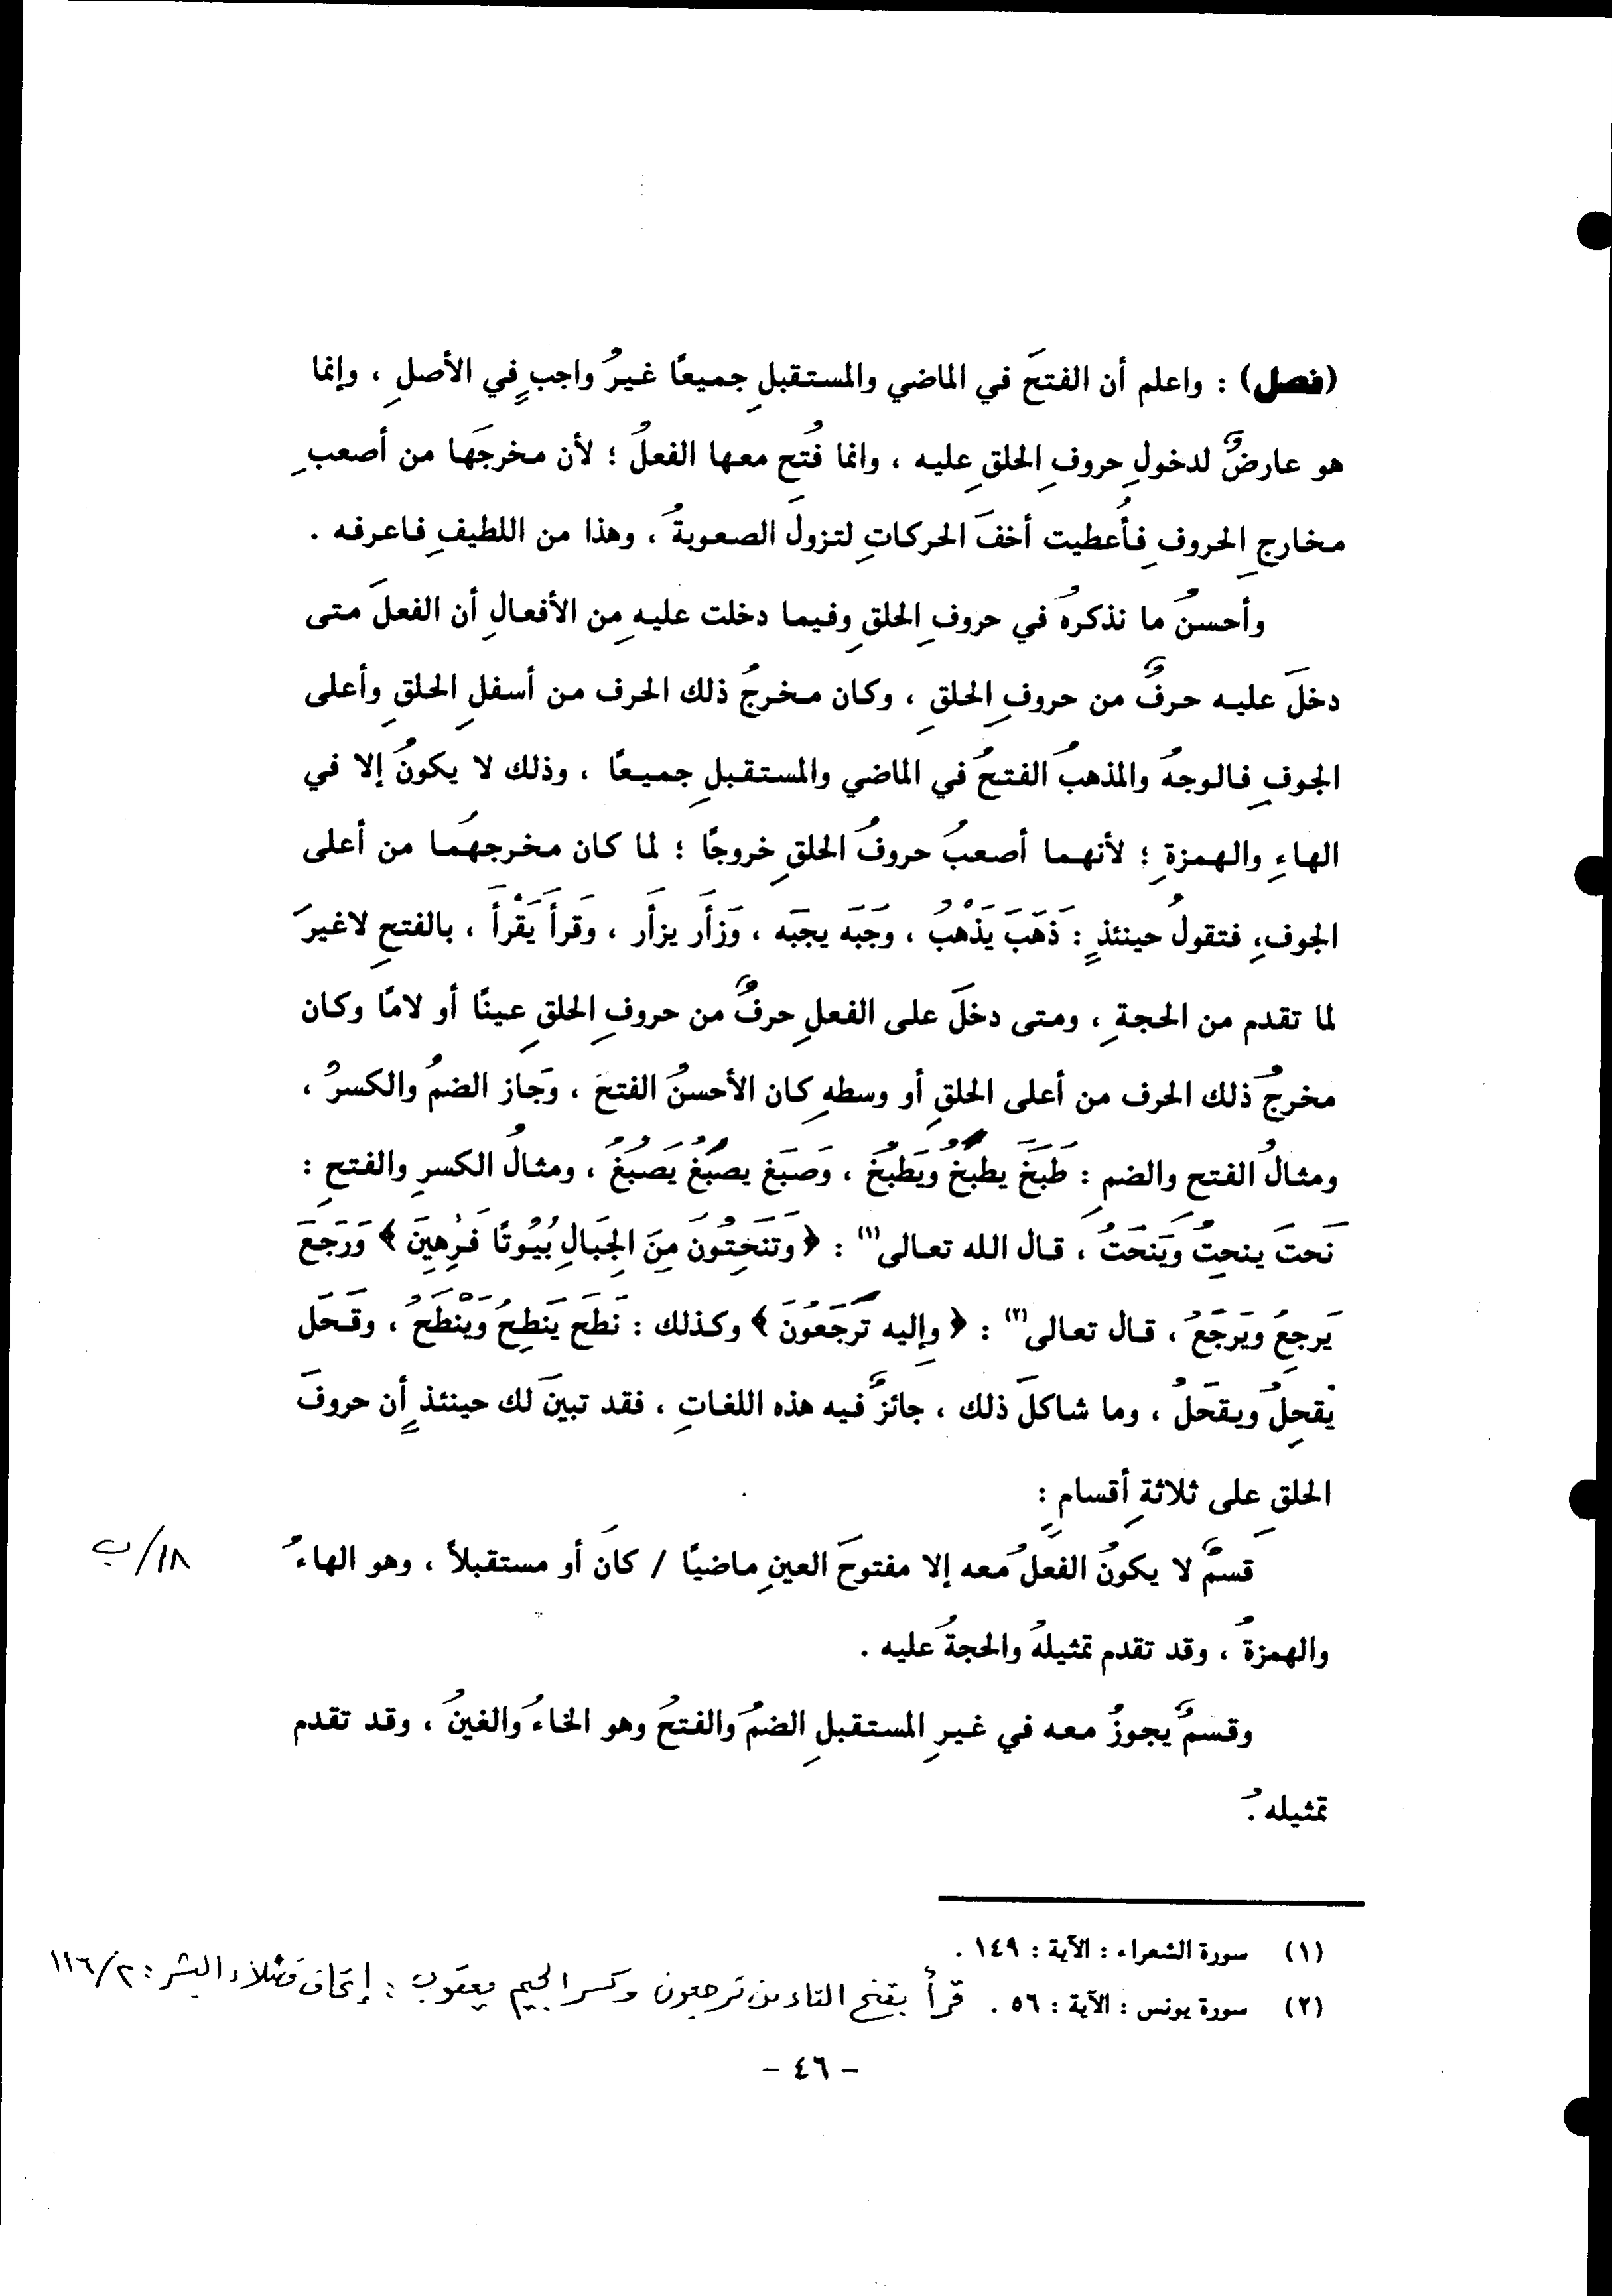 (فصل) : واعلم أن الفتحَ في الماضي والمستقبلِ جميعًا غيرُ واجبٍ في الأصلِ ، وإنما
هو عارضٌ لدخولِ حروفِ الحلقِ عليه ، وانما فُتح معها الفعلُ ؛ لأن مخرجَها من أصعبِ
مخارجِ الحروفِ فأُعطيت أخفَ الحركاتِ لتزولَ الصعوبةُ ، وهذا من اللطيفِ فاعرفه .
وأحسنُ ما نذكرهُ في حروفِ الحلقِ وفيما دخلت عليهِ من الأفعالِ أن الفعلَ متى
دخلَ عليه حرفٌ من حروفِ الحلقِ ، وكان مخرجُ ذلك الحرف من أسفلِ الحلقِ وأعلى
الجوفِ فالوجهُ والمذهبُ الفتحُ في الماضي والمستقبلِ جميعًا ، وذلك لا يكونُ إلا في
الهاءِ والهمزةِ ؛ لأنهما أصعبُ حروفُ الحلقِ خروجًا ؛ لما كان مخرجهُما من أعلى
الجوفِ، فتقولُ حينئذٍ : ذَهَبَ يَذْهَبُ ، وَجَبَه يجبَه ، وَزأَر يزأَر ، وَقرأَ يَقْرأَ ، بالفتحِ لاغيرَ
لما تقدم من الحجةِ ، ومتى دخلَ على الفعلِ حرفٌ من حروفِ الحلقِ عينًا أو لامًا وكان
مخرجُ ذلك الحرف من أعلى الحلقِ أو وسطهِ كان الأحسنُ الفتحَ ، وَجاز الضمُ والكسرُ ،
ومثالُ الفتح والضمِ : طَبَخَ يطبُخُ ويَطبَخُ ، وَصبَغ يصبُغُ يَصبَغُ ، ومثالُ الكسرِ والفتحِ :
نَحتَ ينحِتُ وَينحَتُ ، قال الله تعالى(١) : ﴿ وَتَنحِتُونَ مِنَ الجِبَالِ بُيُوتًا فَرِٰهِينَ ﴾ وَرَجَعَ
يَرجِعُ ويَرجَعُ ، قال تعالى(٢) : ﴿ وإِليه تَرجَعُونَ ﴾ وكذلك : نَطَح يَنطِحُ وَيَنْطَحُ ، وقَحَل
يْقحِلُ ويقحَلُ ، وما شاكلَ ذلك ، جائزٌ فيه هذه اللغاتِ ، فقد تبينَ لك حينئذٍ أن حروفَ
الحلقِ على ثلاثةِ أقسامٍ :
قسمٌ لا يكونُ الفعلُ معه إلا مفتوحَ العينِ ماضيًا / كان أو مستقبلاً ، وهو الهاءُ
١٨/ب
والهمزةُ ، وقد تقدم تمثيلهُ والحجةُ عليه .
وقسمٌ يجوزُ معه في غيرِ المستقبلِ الضمُ والفتحُ وهو الخاءُ والغينُ ، وقد تقدم
تمثيلهُ .
(١) سورة الشعراء : الآية : ١٤٩ .
(٢) سورة يونس : الآية : ٥٦ . قرأ بفتح التاء من ترجعون وكسر الجيم يعقوب : إتحاف فضلاء البشر : ٢/١١٦
– ٤٦ –